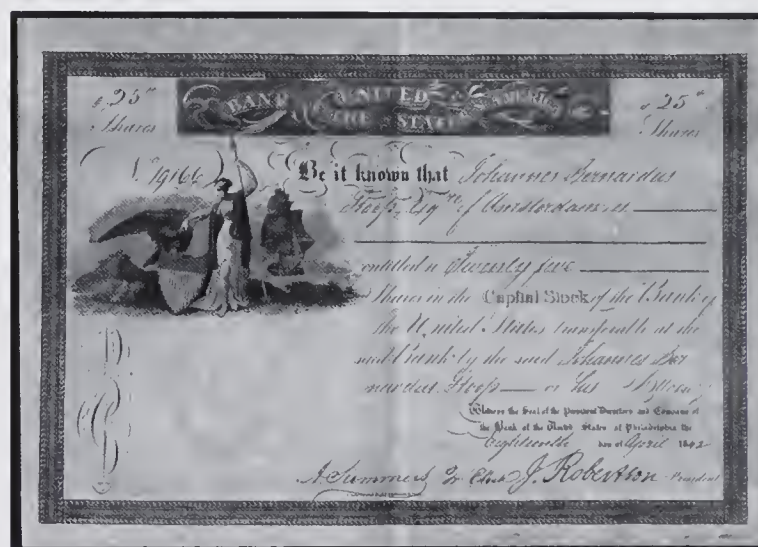 25
Shares
BANK OF THE UNITED STATES OF AMERICA
25
Shares
Be it known that Johannes Bernardus
Esqr. of Amsterdam is
entitled to Twenty five
Shares in the Capital Stock of the Bank of
the United States transferable at the
said Bank by the said Johannes Ber
nardus or his Attorney
Witness the Seal of the President Directors and Company of
the Bank of the United States at Philadelphia the
Eighteenth day of April 1842
A. Summers J. Robertson President